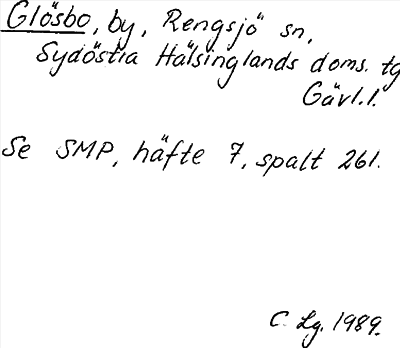 Glösbo, by, Rengsjö sn,
Sydöstra Hälsinglands doms. tg
Gävl.l.
Se SMP, häfte 7, spalt 261.
C. Lg. 1989.